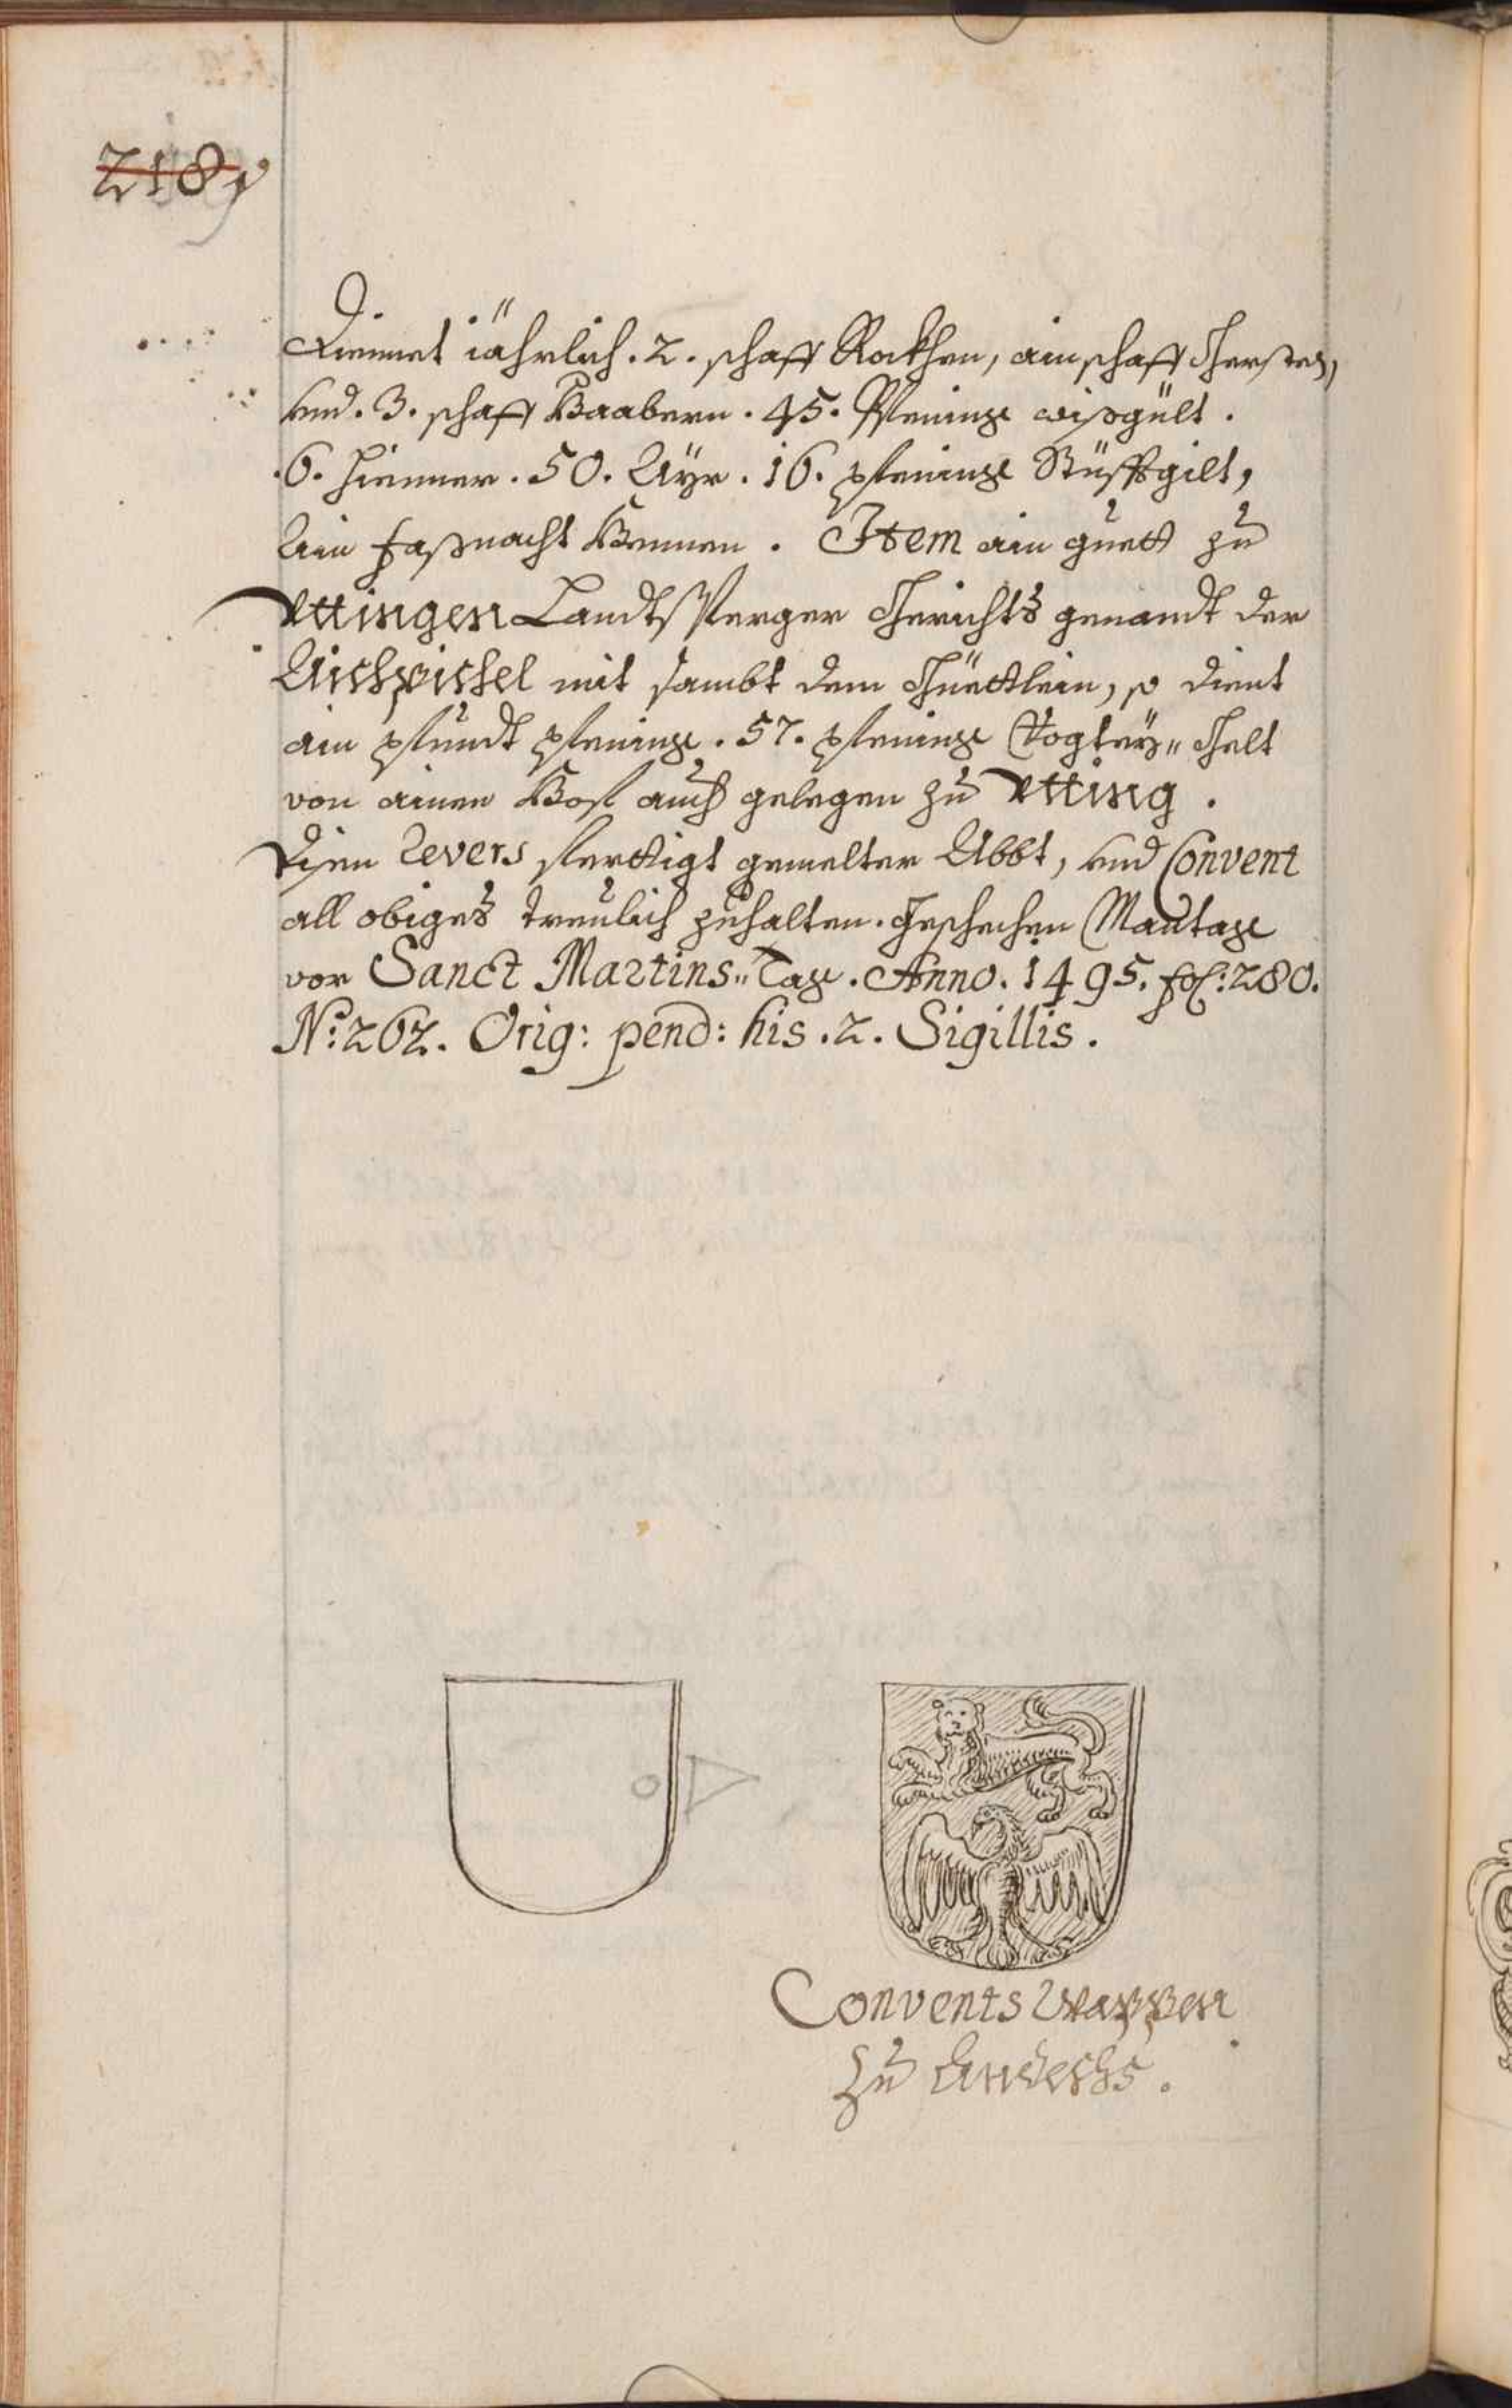 218
Diennet jährlich . 2 . schaff Rockhen, ain schaff Gersten,
vnd . 3 . schaff Haabern . 45 . Pfening wißgült .
. 6 . Hienner . 50 . Ayr . 16 . pfening Stüfftgilt,
Ain faßnacht Hennen . Item ain guett zu
Uttingen Landtsperger Gerichts genandt der
mit sambt dem Güettlein, so dient
ain pfundt pfening . 57 . pfening Vogteÿ" Gelt
von ainen Hof auch gelegen zu Utting .
Disen Revers ferttigt gemelter Abbt, vnd Convent
all obiges treulich zuhalten . Geschechen Mantag
vor Sanct Martins" Tag . Anno . 1495 . fol: 280 .
No: 262 . Orig: pend: his . 2 . Sigillis .
Convents Wappen
zu Andechs .